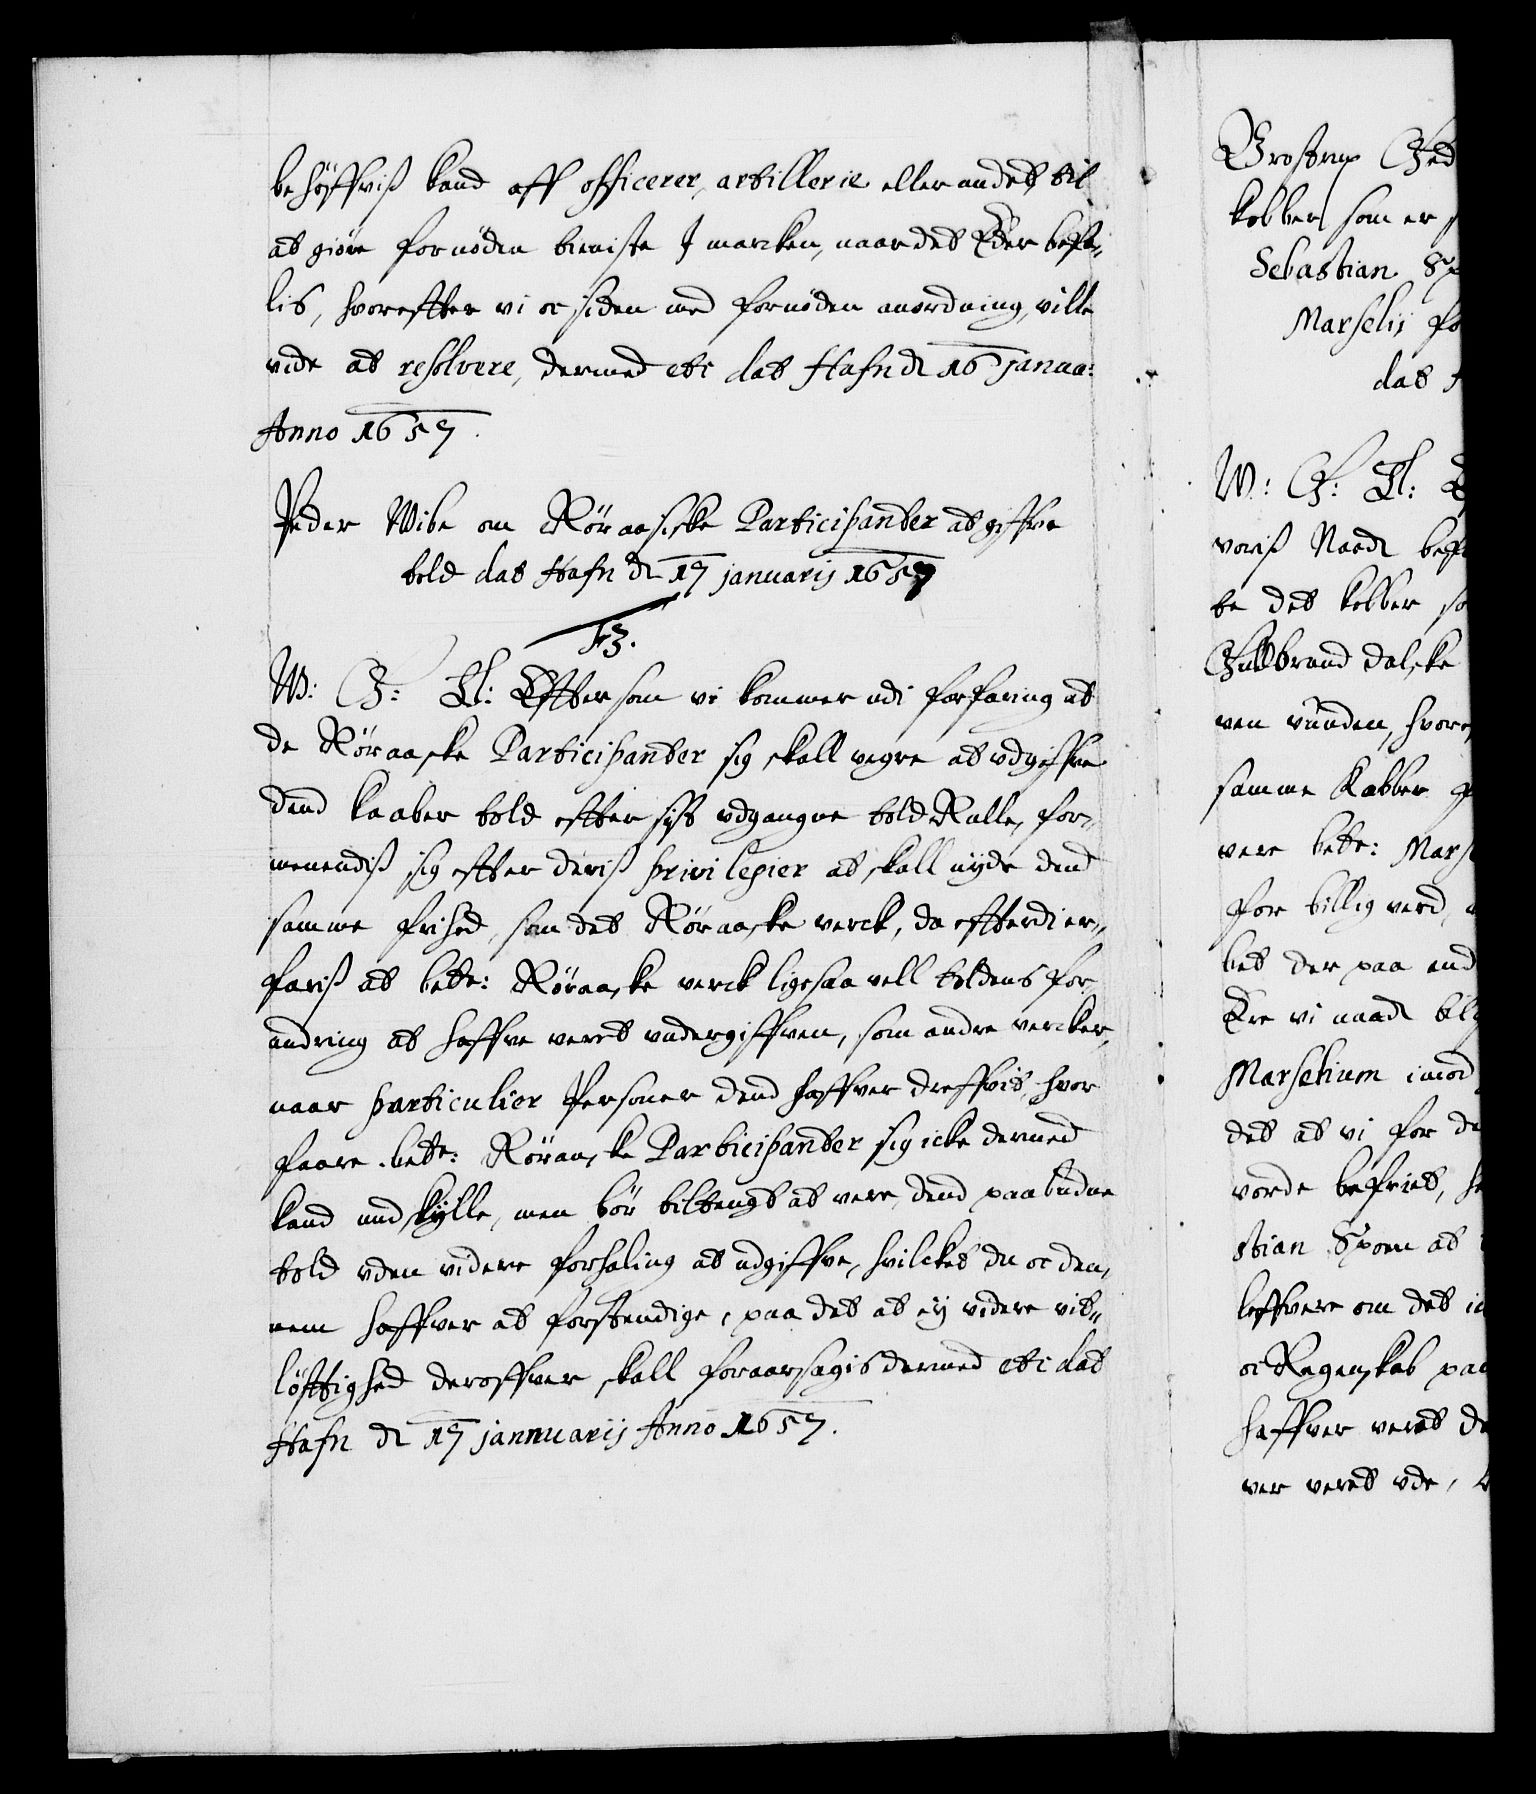 behöffviß kand aff officerer, artillerie eller andet, til
at giöre fornöden tieniste J marcken, naar det Eder befa-
lis, hvorefter vi oc siden med fornöden anordning, ville
vide at resolvere, dermed etc dat Hafn d 16 Janua:
Anno 1657.
Peder Wibe om Röraasiske Participanter at giffve
told dat Hafn d 17 januarij 1657
F3.
W: G: Tl: Efftersom vi kommer udi forfaring at
de Röraaske Participanter sig skall vegre at udgiffve
dend kaaber told effter sist udgangne told Rulle, for-
menendiß sig effter deriß privilegier at skall nyde dend
samme frihed, som det Röraaske verck, da effterdi er-
fariß at bete: Röraaske verck ligesaa vell toldens for-
andring at haffve veret undergiffven, som andre vercker,
naar particulier Personer dend haffver dreffvit, hvor
faare bete: Röraaske Participanter sig icke dermed
kand undskylle, men bör tiltengt at vere, dend paabudne
told uden videre forhaling at udgiffve, hvilcket du oc den-
nem haffver at forstendige, paa det at ey videre vit-
löfftighed deroffver skall foraarsagis dermed etc dat
Hafn d 17 jannuarij Anno 1657.
Kobber som er
Sebastian
Marselis
dat
W: G: Tl:
voriß Naad
te det kobber
Gulbrand dalske
ven vunden,
samme Kobber
vere bete:
for billig verd,
bet der paa end
Ere vi naad
Marselium imod
det at vi for
vorde befriet,
stian Spoen at
leffvere om det
oc Regenskab
haffver veret
ver veret ude,